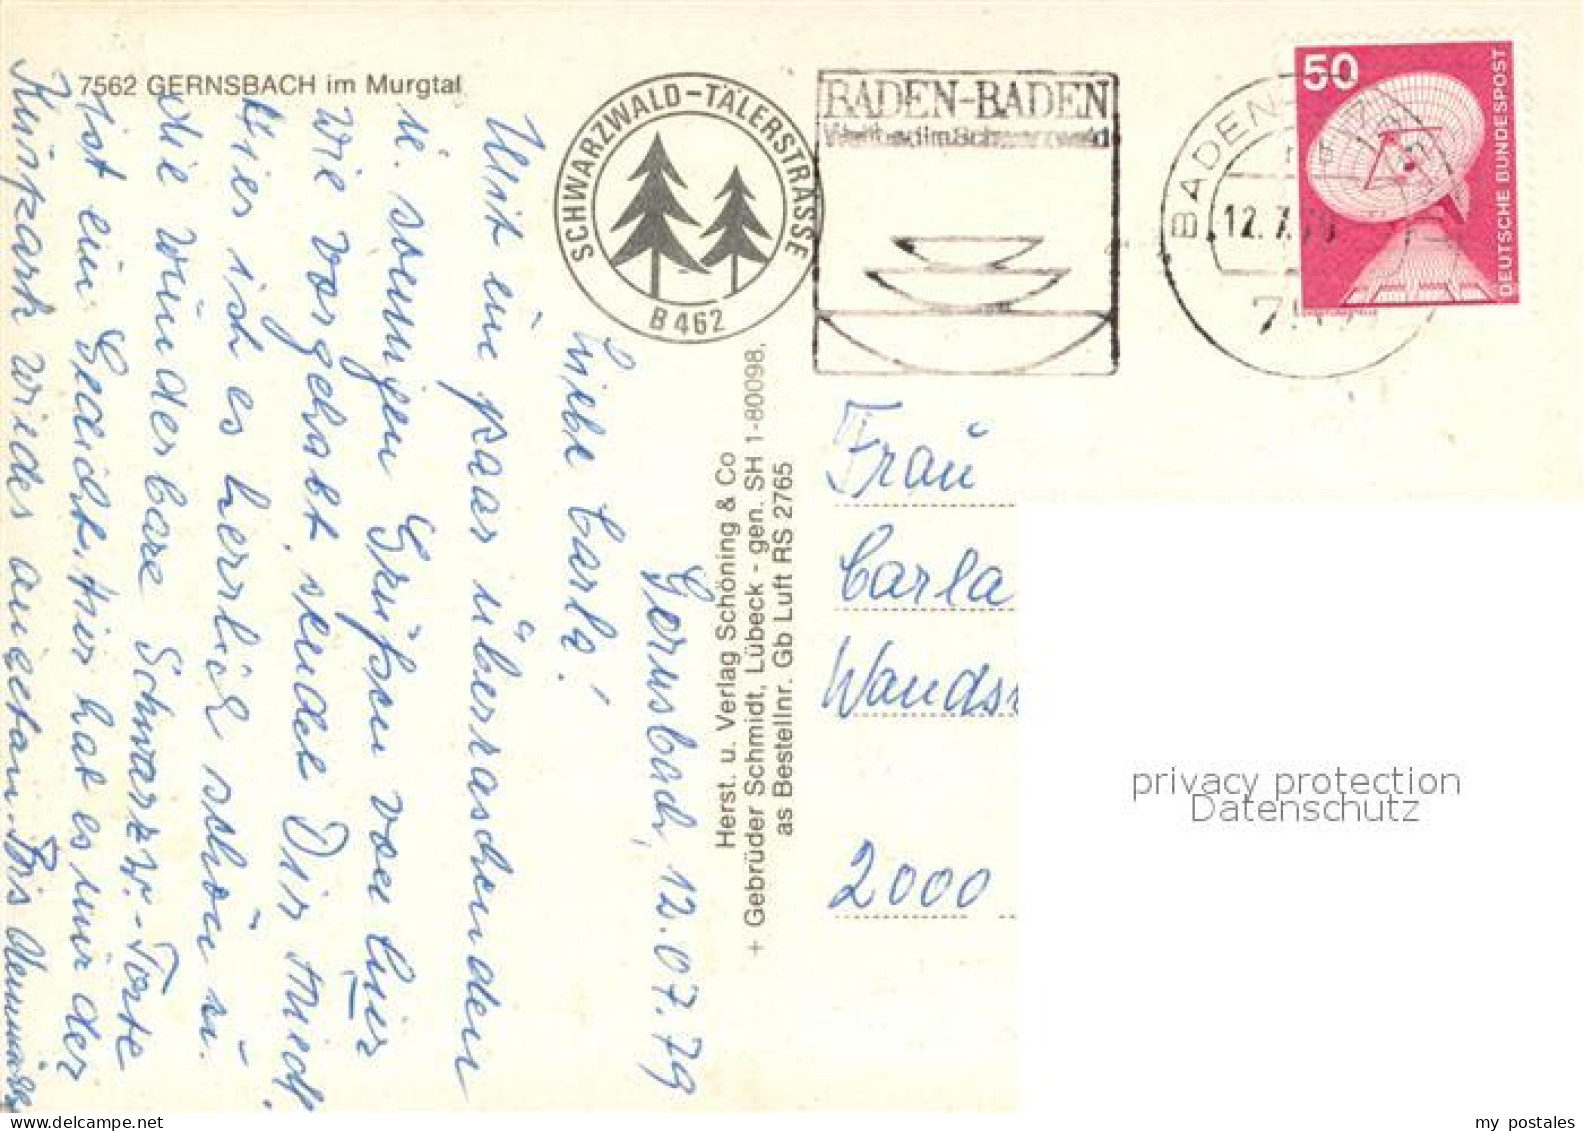 7562 GERNSBACH im Murgtal
SCHWARZWALD-TÄLERSTRASSE
B 462
BADEN-BADEN
BADEN-BADEN
12.7.79
50
DEUTSCHE BUNDESPOST
Herst. u. Verlag Schöning & Co
+ Gebrüder Schmidt, Lübeck - gen. SH 1-80098.
as Bestellnr. Gb Luft RS 2765
Gernsbach, 12.07.79
Liebe Carla!
Mit ein paar überraschenden
u. sonnigen Grüßen von hier
wie vorgehabt, sendet Dir Friedl.
Hier ist es herrlich schön u.
die wunderbare Schwarzw.-Torte
ist ein Gedicht. Hier hat es mir der
Kurpark wieder angetan. Bis
Frau
Carla
Wands
2000
privacy protection
Datenschutz
my postales